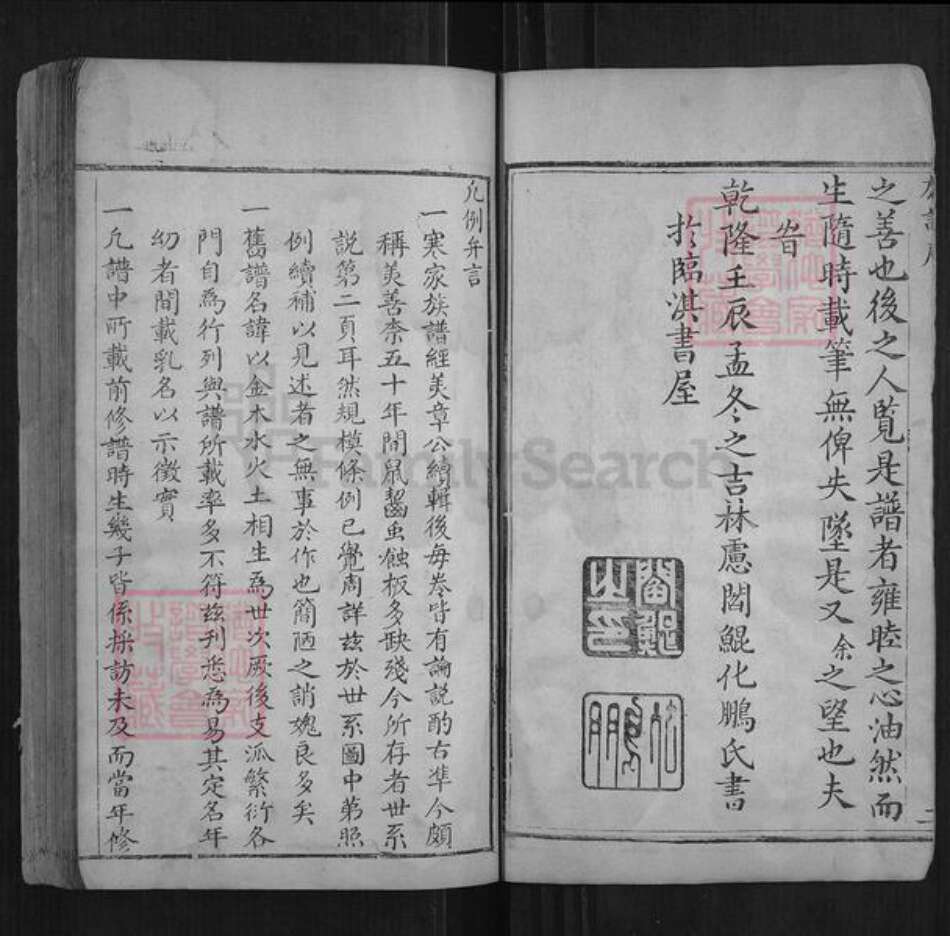 之善也後之人覧是譜者雍睦之心油然而
生隨時載筆無俾失墜是又余之望也夫
旹
乾隆壬辰孟冬之吉林慮閻鯤化鵬氏書
於臨淇書屋
凡例弁言
一寒家族譜經美章公續輯後每卷皆有論說酌古準今頗
稱美善柰五十年間鼠齧虫蝕板多缺殘今所存者世系
說第二頁耳然規模條例已覺周詳兹於世系圖中第照
例續補以見述者之無事於作也簡陋之誚媿良多矣
一舊譜名諱以金木水火土相生為世次厥後支派繁衍各
門自為行列與譜所載率多不符兹刋悉為易其定名年
幼者間載乳名以示徵實
一凡譜中所載前修譜時生幾子皆係採訪未及而當年修
FamilySearch